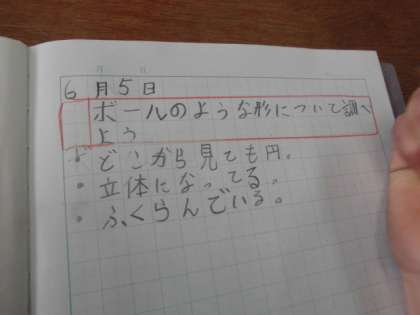 6月5日
ボールのような形について調べ
よう
・どこから見ても円。
・立体になってる。
・ふくらんでいる。